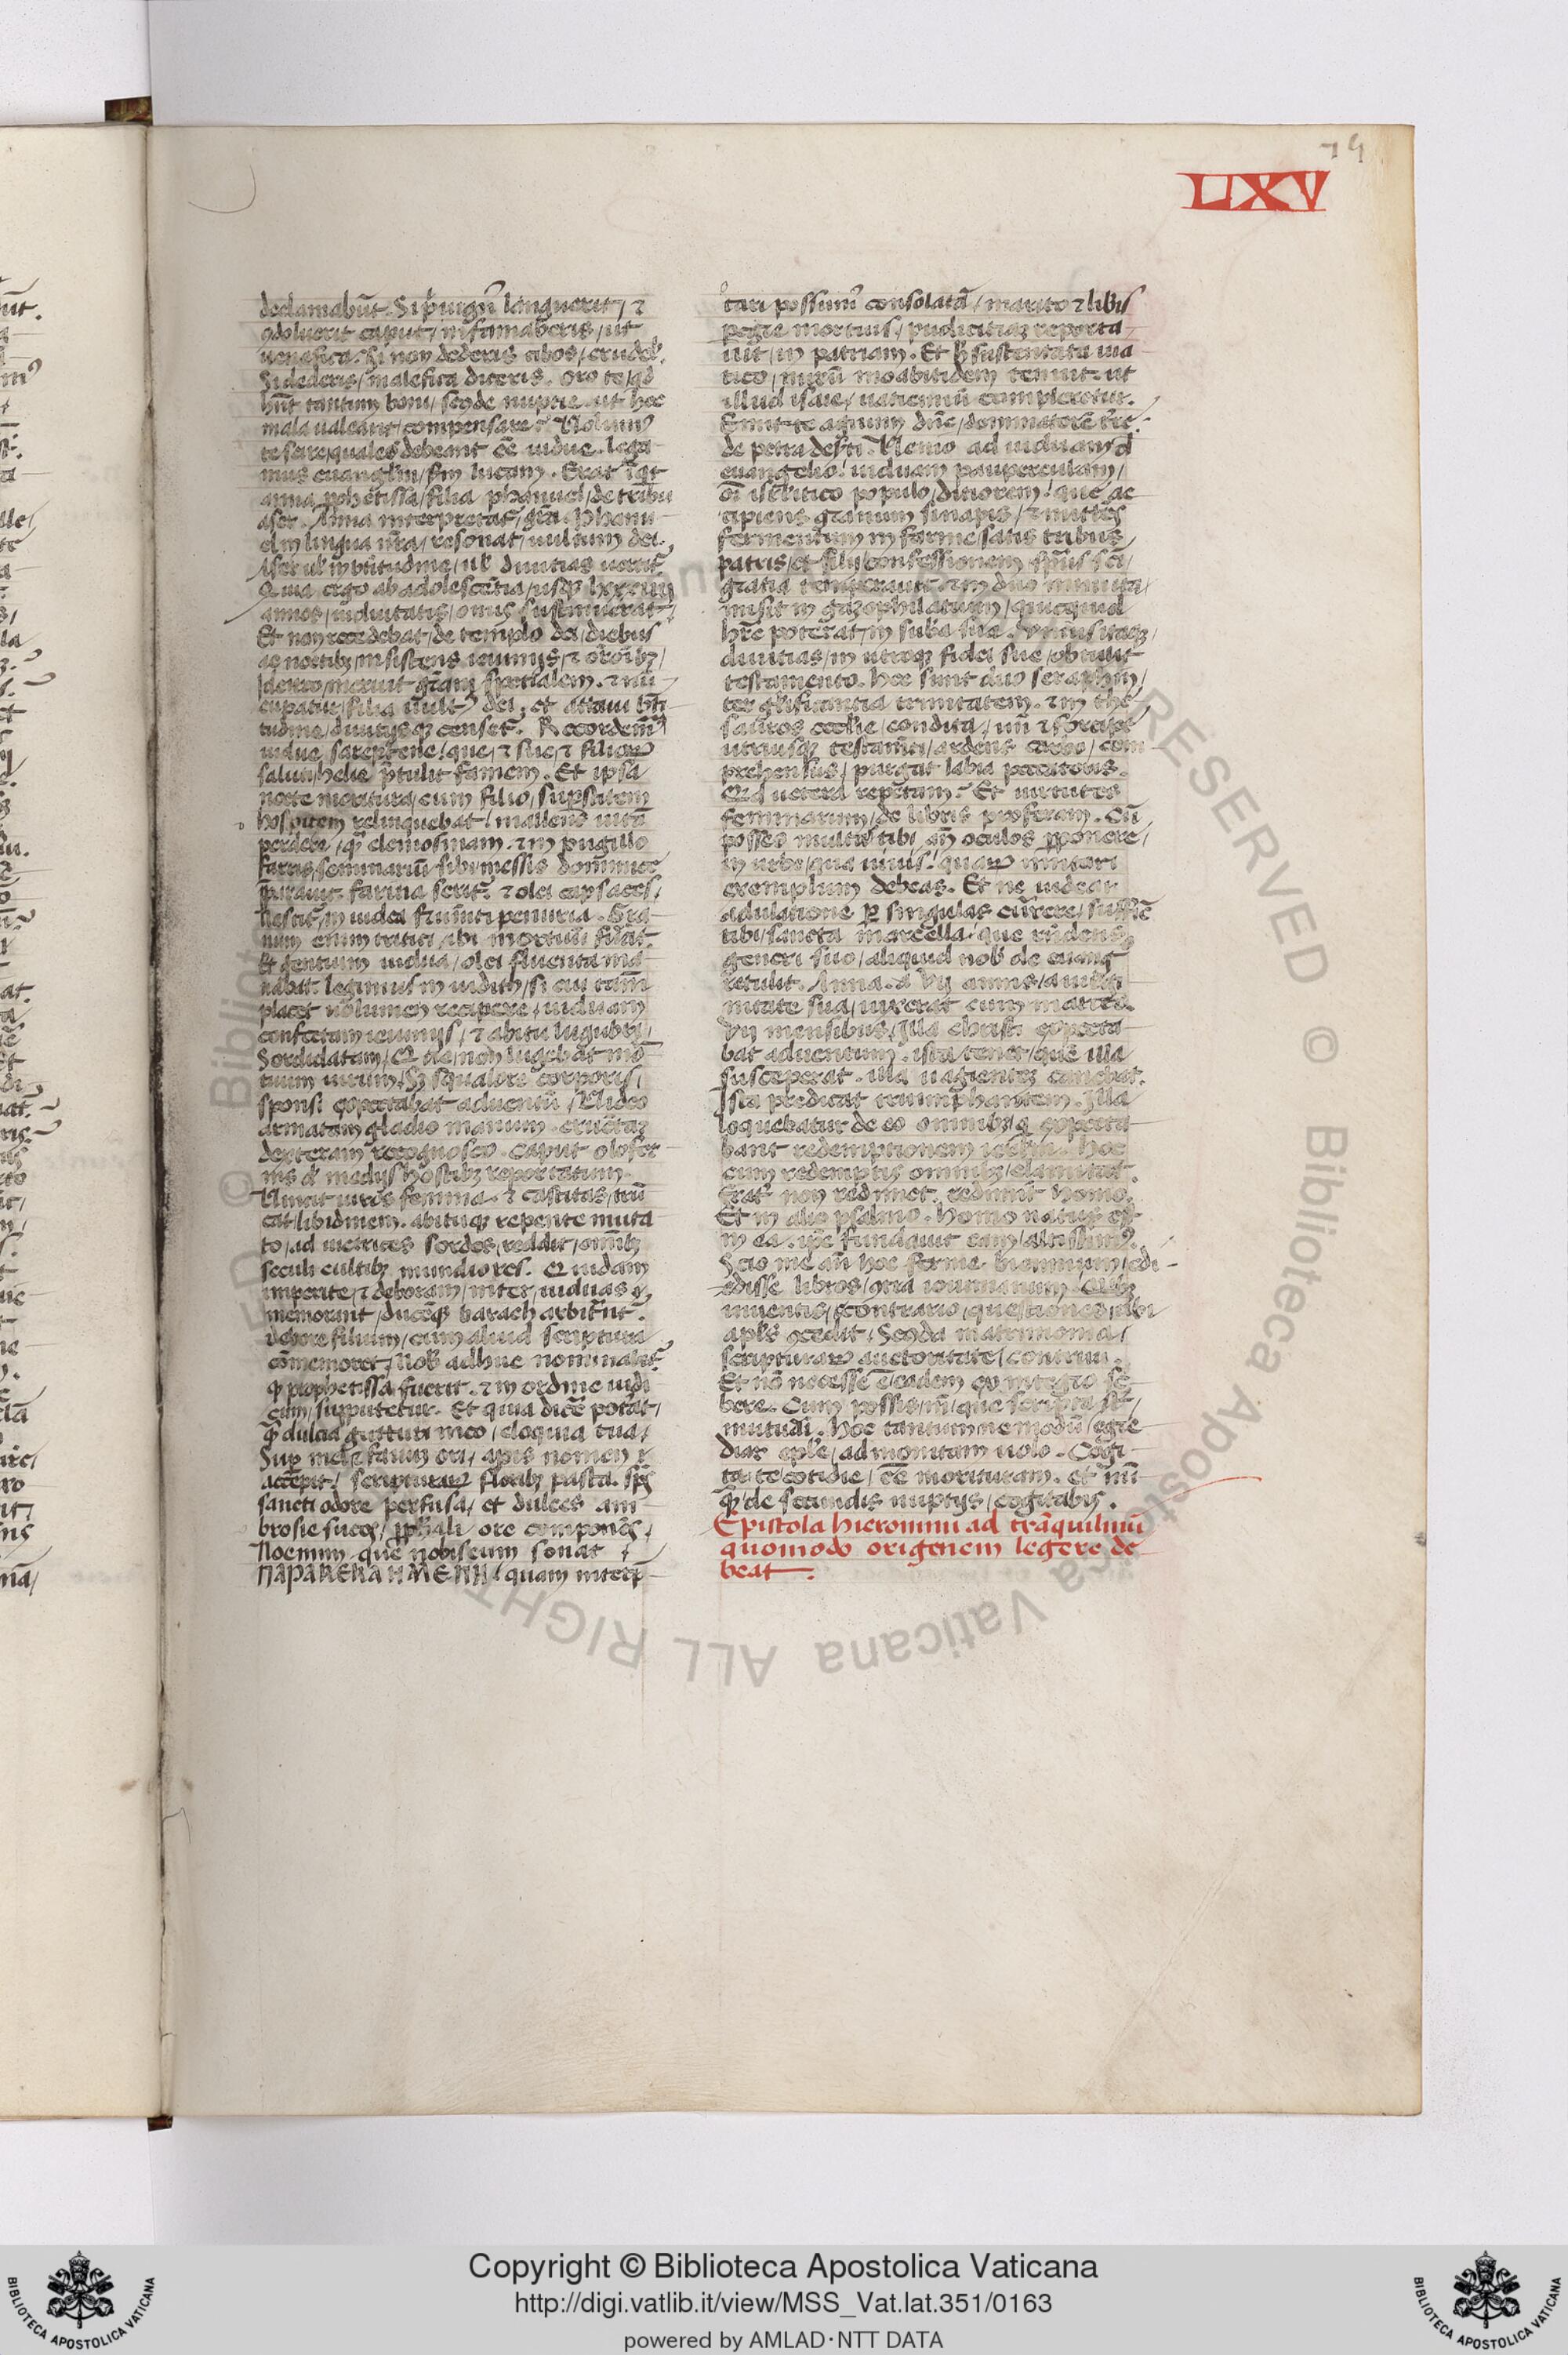 79
LXV
declamabūt. Si p̄uignꝰ languerit / ⁊
ꝯdoluerit caput / infamaberis / ut
uenefica. Si non dederis cibos / crudel̓.
Si dederis / malefica diceris. Oro te / qd̓
hn̄t tantum boni / scd̓e nuptie. ut hec
mala ualeant / compensare? Volumꝰ
te scire / quales debeant ēe uidue. Lega-
mus euangl̓m / scd̓m lucam. Erat īqt
anna ꝓphetissa / filia phanuel / de tribu
aser. Anna interpretat̃ / gr̄a. Phanu-
el in lingua nr̄a / resonat / uultum dei.
Aser ul̓ in btitudine / ul̓ diuitias uertit̃.
Quia ergo ab adolescētia / usqꝫ lxxxiiij
annos / uiduitatis / onus sustinuerat /
Et non recedebat / de templo dei / diebus
ac noctibꝫ / insistens ieiunijs / ⁊ or̄oibꝫ /
Idcirco / meruit gr̄am sp̄etialem. ⁊ nū-
cupatur / filia uultꝰ dei. et attaui bt̄i
tudine / diuitijsqꝫ censet̃. Recordem̄
uidue sareptene / que / ⁊ sue / ⁊ filioꝝ
saluti / helie p̄tulit famem. Et ipsa
nocte moritura / cum filio / suꝑstitem
hospitem relinquebat / mallens uitā
perdere / qꝫ elemosinam. ⁊ in pugillo
farris / seminariū sibi / messis dominice
p̄parauit. farina serit̃. ⁊ olei capsaces /
Nascit̃ / in iudea frum̄ti penuria. Gra-
num enim tritici / ibi mortuū fūat.
Et gentium uidua / olei fluenta ma-
nabāt. Legimus in iudith / si cui tam̄
placet uolumen recipere / uiduam
confectam ieiunijs / ⁊ abitu lugubri /
Sordidatam / Que non lugebat mor-
tuum uirum / Sꝫ squalore corporis /
sponsi exspectabat aduentū / Video
armatam gladio manum. cruētaꝫ
dexteram recognosco. Caput olofer-
nis de medijs hostibꝫ reportatum.
Vincit uiros femina. ⁊ castitas / trū
cat / libidinem. abituqꝫ repente muta
to / ad uictrices sordes / reddit / omībꝫ
seculi cultibꝫ mundiores. Quidam
imperite / ⁊ deboram / inter / uiduas
memorant / ducēqꝫ barach arbitrant̃.
debore filium / cum aliud scriptura
cōmemoret / Nob̓ adhuc nominabit̃
qꝫ prophetissa fuerit. ⁊ in ordine iudi
cum / supputetur. Et quia dicē poterat /
qꝫ̄ dulcia gutturi meo / eloquia tua /
Suꝑ mel ⁊ fauum ori / apis nomen
accepit / scripturaꝝ floribꝫ pasta. sp̄s
sancti odore perfusa / et dulces am-
brosie sucos / ꝓphali ore componēs /
Noemin. que nobiscum sonat
ΠΑΡΑΚΕΚΛΗΜΕΝΗ / quam interp̄-
tari possumꝰ consolatā / marito ⁊ lib̓is
pegre mortuis / pudicitiaꝫ reporta-
uit / in patriam. Et h̓ sustentata uia
tico / nurū moabitidem tenuit. ut
illud isaie / uaticiniū compleretur.
Emitte agnum dn̄e / dominatorē t̄re.
de petra desti̓. Venio ad uiduam d̓
euangelio / uiduam pauperculam /
oī isrl̓itico populo / ditiorem / que ac
cipiens granum sinapis / ⁊ mittēs
fermentum in farine / satis tribus
patris / et filij / confessionem sp̄us sc̄i
gratia temperauit. ⁊ in duo minuta
misit in gazophilatium / quicquid
hr̄e poterat / in sub̄a sua. Vniuersasqꝫ
diuitias / in utroqꝫ fidei sue / obtulit
testamento. Hec sunt duo seraphin /
ter gl̓ificantia trinitatem. ⁊ in the-
sauros ecclie / condita / un̄ ⁊ forcipe
utriusqꝫ testam̄ti / ardens carbo / com-
prehensus / purgat labia peccatoris.
Qid uetera repetam? Et uirtutes
feminarum / de libris proferam. Cū
posses multas tibi an̄ oculos ꝓponere /
in urbe / qua uiuis / quaꝝ imitari
exemplum debeas. Et ne uidear
adulatione ꝑ singulas currere / suffic̄
tibi / sancta marcella. que rn̄dens
generi suo / aliquid nob̓ de euang̓
retulit. Anna. a vij annis / a uirgi-
nitate sua / uixerat cum marito.
vij mensibus / Illa christi exspecta-
bat aduentum. ista tenet / quē illa
susceperat. illa uagientē canebat.
Ista predicat triumphantem. Illa
loquebatur de eo omnibꝫ / qi exspecta-
bant redemptionem israhel. hec
cum redemptis omnibꝫ / clamitat.
Frat̃ non redimet. redimit homo.
Et in alio psalmo. Homo natus est
in ea. ip̄e fundauit eam / altissimꝰ.
Scio me an̄ hoc ferme biennium / edi-
edisse libros / ꝯtra iouinianum. Quibꝫ
inuenientis / e contrario / questiones. ubi
apl̓s ꝯcedit / Scd̓a matrimonia /
scripturaꝝ auctoritate / contriui.
Et nō necesse ē / eadem ex integro sc̄-
bere. Cum possis īn̄ / que scripta st̄ /
mutuari. Hoc tantum ne modū / egre
diar epl̓e / admonitam uolo. Cogi-
ta te cotidie / ēe morituram. et nū-
qꝫ̄ de secundis nuptijs / cogitabis.
Epistola hieronimi ad trāquilinū
quomodo origenem legere de
beat.
Copyright © Biblioteca Apostolica Vaticana
http://digi.vatlib.it/view/MSS_Vat.lat.351/0163
powered by AMLAD·NTT DATA